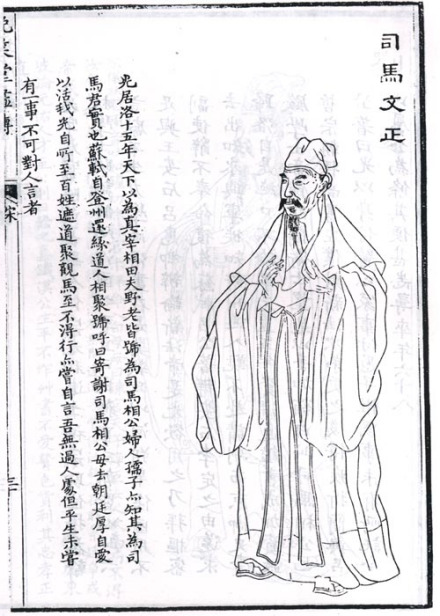 司馬文正
光居洛十五年天下以為真宰相田夫野老皆號為司馬相公婦人孺子亦知其為司
馬君實也蘇軾自登州還緣道人相聚號呼曰寄謝司馬相公毋去朝廷厚自愛
以活我光自所至百姓遮道聚觀馬至不得行亦嘗自言吾無過人處但平生未嘗
有事不可對人言者
晚笑堂畫傳